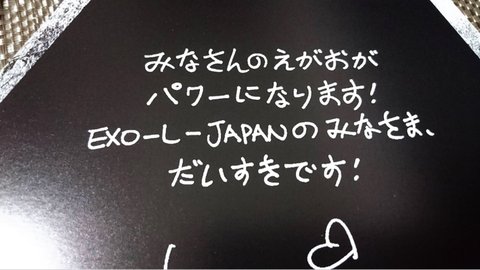 みなさんのえがおが
パワーになります!
EXO-L-JAPANのみなさま、
だいすきです!